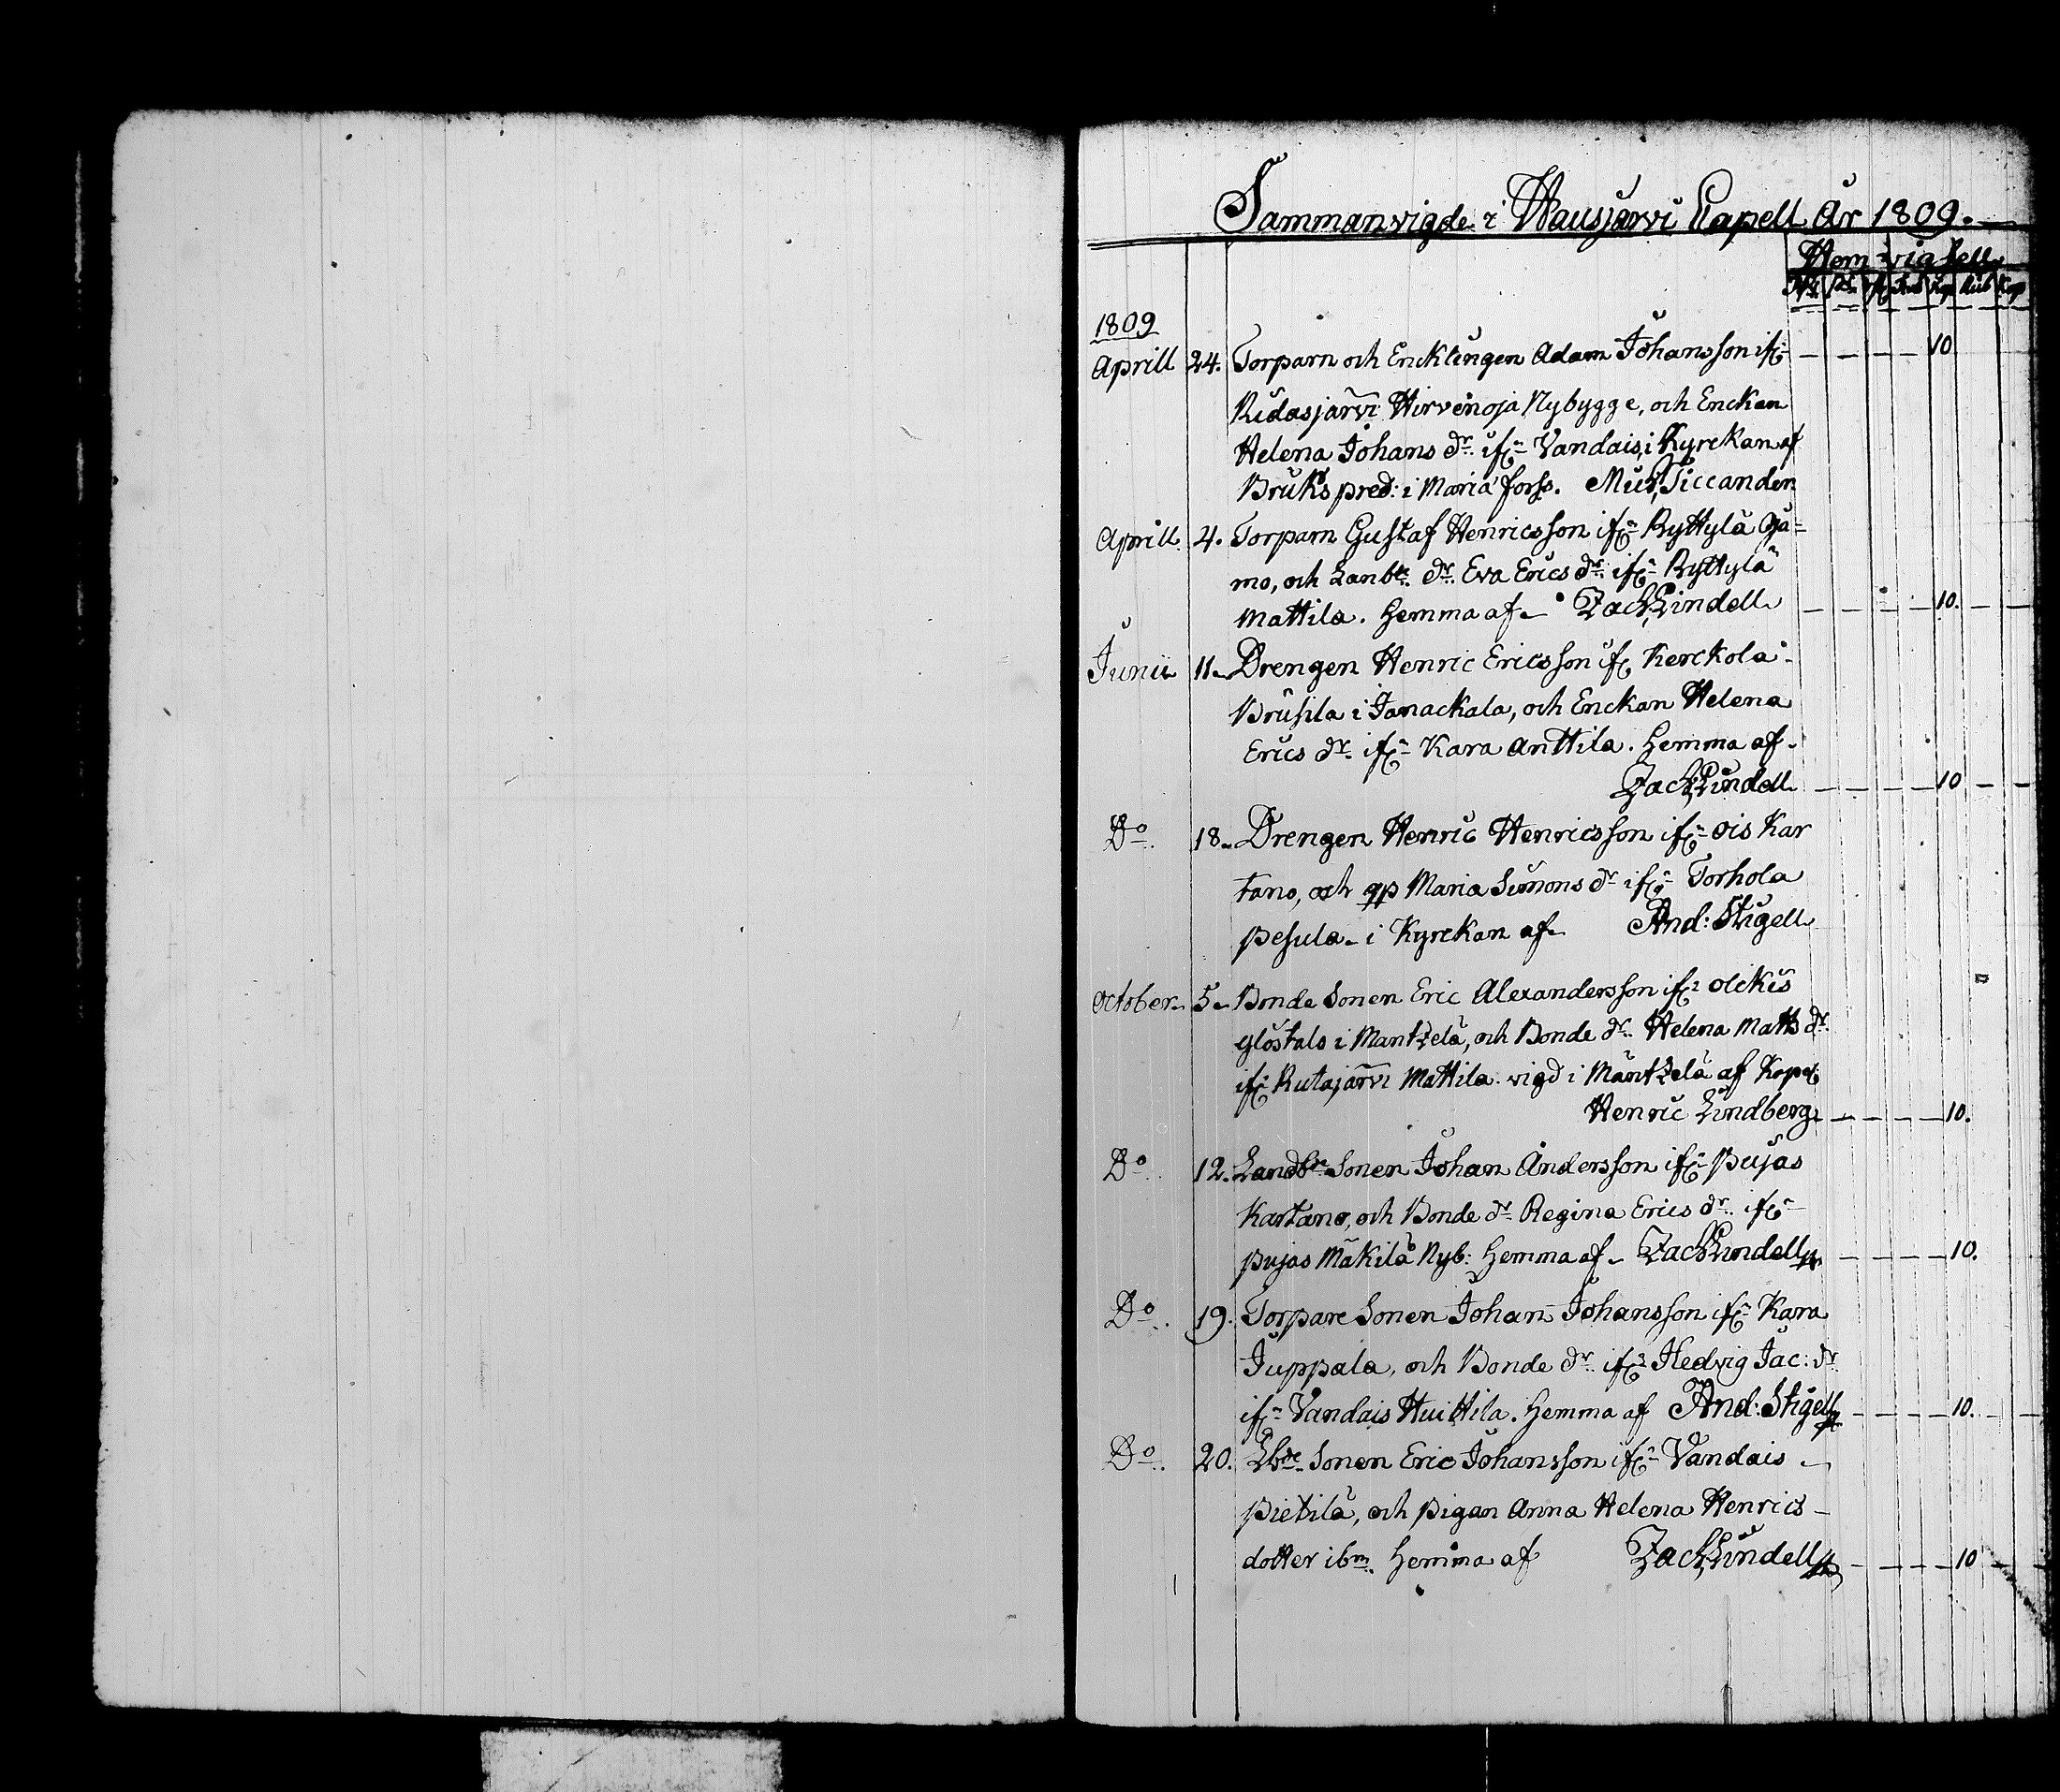 Sammanvigde i Hausjärvi Capell År 1809.
Hem vigsell
Rub Kop Rub Kop
1809
Aprill 24. Torparn och Encklingen Adam Johansson ifr: 10
Ridasjärvi Hirvenoja Nybygge, och Enckan
Helena Johans dr. ifr: Vandais, i Kyrckan af
Bruks pred: i Maria forss. Ticcander
Aprill 4. Torparn Gustaf Henricsson ifr: Ryttylä Oja=
mo, och Lanbr. dr. Eva Erics dr: ifr: Ryttylä
Mattila. Hemma af Zach: Lindell 10.
Junii 11. Drengen Henric Ericsson ifr: Kerckola
Brusila i Janackala, och Enckan Helena
Erics dr. ifr: Kara Anttila. Hemma af
Zach: Lindell 10
Do. 18. Drengen Henric Henricsson ifr: Ois Kar
tano, och qp Maria Simons dr ifr: Torhola
Pesula i Kyrckan af And: Stigell
October 5. Bonde Sonen Eric Alexandersson ifr: Olckis
i Mantzelä, och Bonde dr. Helena Matts dr.
ifr: Rutajärvi Mattila. vigd i Mäntzelä af Kapel:
Henric Lindberg 10.
Do. 12. Landbr Sonen Johan Andersson ifr: Pujas
Kartano, och Bonde dr. Regina Erics dr. ifr:
Pujas Mäkilä Nyb: Hemma af Zach: Lindell 10.
Do. 19. Torpare Sonen Johan Johansson ifr: Kara
Juppala, och Bonde dr. ifr: Hedvig Jac: dr.
ifr: Vandais Huittila. Hemma af And: Stigell 10.
Do. 20. Lbde Sonen Eric Johansson ifr: Vandais
Pietilä, och Pigan Anna Helena Henrics-
dotter ibm. Hemma af Zach: Lindell 10